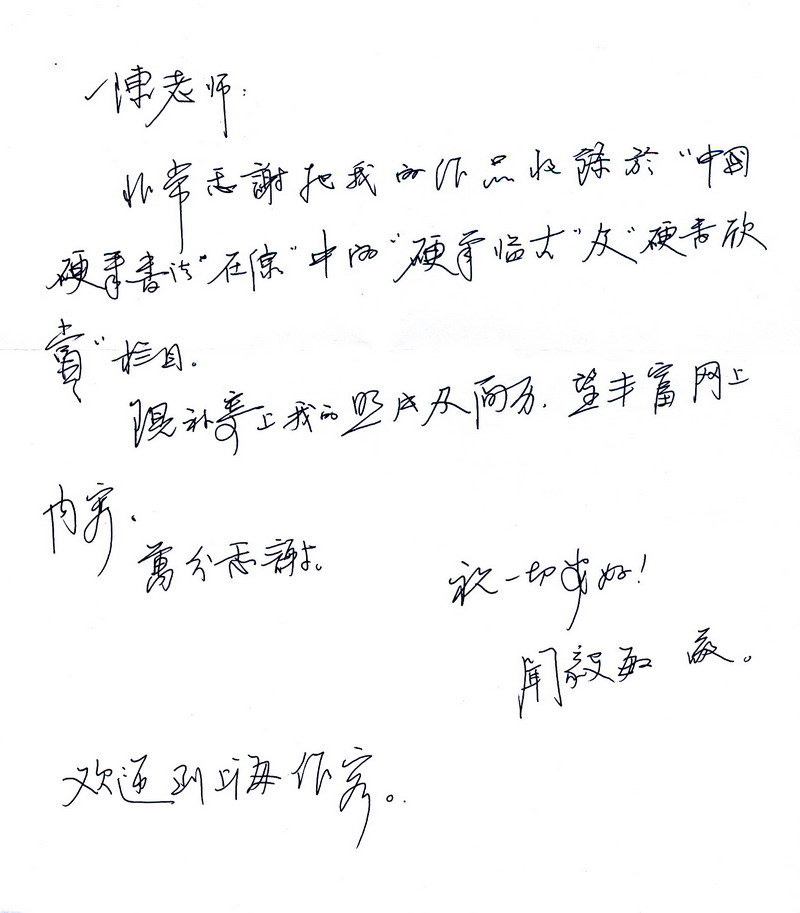 陳老师:
非常感謝把我的作品收録於“中国
硬筆書法"在缐"中的"硬筆临古"及"硬書欣
賞"栏目.
現补寄上我的照片及简历.望丰富网上
内容.
萬分感謝。
祝一切安好!
聞毅敏 敬。
欢迎到上海作客。